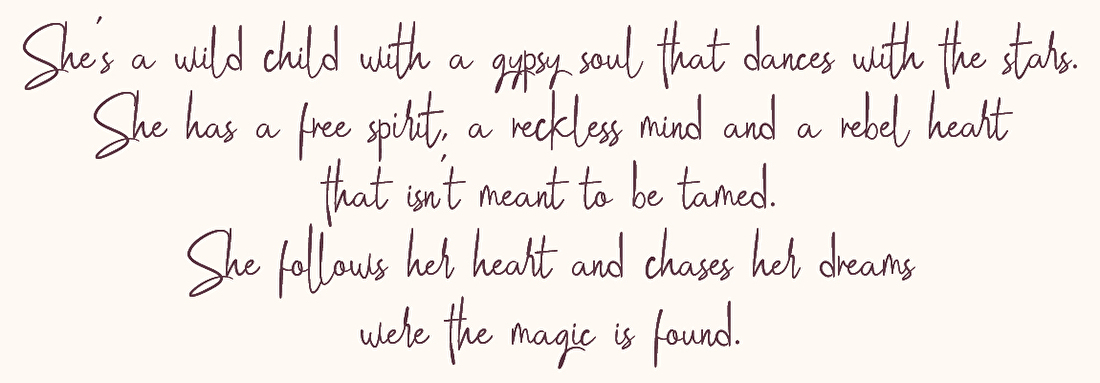 She's a wild child with a gypsy soul that dances with the stars.
She has a free spirit, a reckless mind and a rebel heart
that isn't meant to be tamed.
She follows her heart and chases her dreams
were the magic is found.